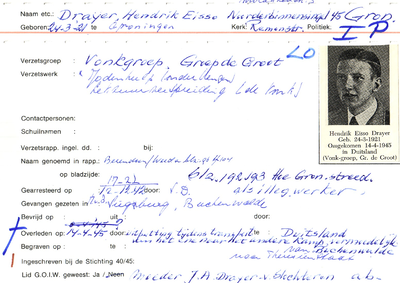 Naam etc.: Drayer, Hendrik Eisso Gron.
Geboren: 24-3-21 te Groningen Kerk: Remonstr. Politiek.
I P
LO
Verzetsgroep: Vonkgroep, Groep de Groot
Verzetswerk: Jodenhulp (onderduikers)
(de Vonk)
Contactpersonen:
Schuilnaam:
Verzetsrapp. ingel. dd. : bij:
Naam genoemd in rapp.:
op bladzijde: 17-22 blz. 192, 193 the Gron. streed.
Gearresteerd op door: S.D. als illeg. werker.
Gevangen gezeten in Siegburg, Buchenwalde
Bevrijd op uit door:
Overleden op: 14-4-45 door: uitputting tijdens transport te: Duitsland
van het ene naar het andere kamp, vermoedelijk
Begraven op : te: van Buchenwalde
naar Theresienstadt
Ingeschreven bij de Stichting 40/45:
Lid G.O.I.W. geweest: Ja / Neen Moeder J.A. Drayer-v.
Hendrik Eisso Drayer
Geb. 24-3-1921
Omgekomen 14-4-1945
in Duitsland
(Vonk-groep, Gr. de Groot)